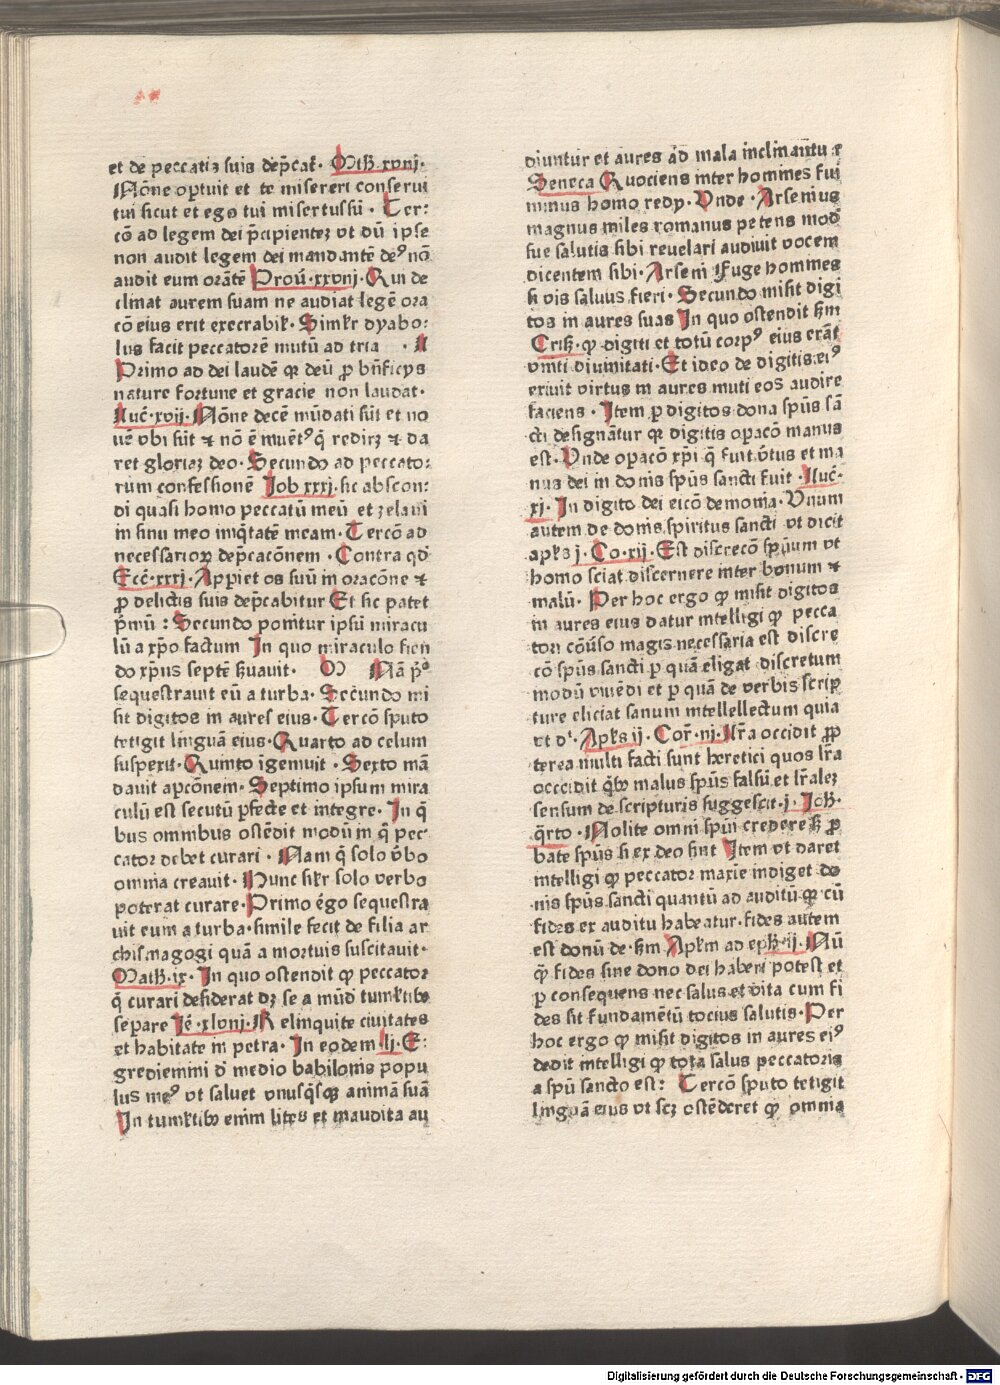 et de peccatis suis dep̄cat᷒· Mtꝫ xvnj·
Nōne oꝑtuit et te misereri conserui
tui sicut et ego tui misertussū · Ter:
cō ad legem dei p̄cipientez vt dū ipse
non audit legem dei mandantē deꝰ nō
audit eum orātē Prou᷒·xxvnj·Qui de
clinat aurem suam ne audiat legē ora
cō eius erit execrabil᷒· Simil᷒r dyabo:
lus facit peccatorē mutū ad tria · A
Primo ad dei laudē qꝛ deū ꝓ bn̄ficijs
nature fortune et gracie non laudat·
Luc᷒·xvij·Nōne decē mūdati sūt et no
uē vbi sūt ⁊ nō ē inuētꝰ q̄ redirꝫ ⁊ da
ret gloriaꝫ deo·Secundo ad peccato:
rum confessionē Job xxxj·sic abscon:
di quasi homo peccatū meū et zelaui
in sinu meo iniq̄tatē meam·Tercō ad
necessarioꝝ dep̄cacōnem·Contra qd̄
Ecc᷒·xxxj·Appiet os suū in oracōne ⁊
ꝓ delictis suis dep̄cabitur Et sic patet
p̄mū : Secundo ponitur ipsū miracu
lū a xp̄o factum In quo miraculo fien
do xp̄us septē ẜuauit· M Nā pͦ
sequestrauit eū a turba·Secundo mi
sit digitos in aures eius·Tercō sputo
tetigit linguā eius·Quarto ad celum
suspexit·Quinto igemuit ·Sexto mā
dauit apcōnem·Septimo ipsum mira
culū est secutū ꝑfecte et integre·In q̄
bus omnibus ostēdit modū in q̄ pec
cator debet curari · Nam q̄ solo v̄bo
omnia creauit·Nunc sil᷒r solo verbo
poterat curare·Primo ego sequestra
uit eum a turba·simile fecit de filia ar
chisinagogi quā a mortuis suscitauit·
Matꝫ·ix·In quo ostendit qꝙ peccator
q̄ curari desiderat dꝫ se a mūd᷒ tumltibꝰ
separe Ie᷒·xlvnj·Relinquite ciuitates
et habitate in petra·In eodem lj·E:
grediemini d᷒ medio babilonis popu
lus meꝰ vt saluet vnusq̄sqꝫ animā suā
In tumltibꝰ enim lites et maudita au
diuntur et aures ad mala inclinantur
Seneca Quociens inter hommes fui
minus homo redy·Unde ·Arsenius
magnus miles romanus petens mod᷒
sue salutis sibi reuelari audiuit vocem
dicentem sibi·Arseni fuge hommes
si vis saluus fieri·Secundo misit digi
tos in aures suas In quo ostendit ẜm
Criẜ·qꝙ digiti et totū corpꝰ eius erāt
vniti diuinitati·Et ideo de digitis eiꝰ
exiuit virtus in aures muti eos audire
faciens · Item ꝑ digitos dona spūs sā
cti designātur qꝛ digitis oꝑacō manus
est·Unde oꝑacō xp̄i q̄ fuit v̄tus et ma
nus dei in donis spūs sancti fuit ·Luc᷒·
xj·In digito dei eicō demonia·Unum
autem de donis spiritus sancti vt dicit
apls j·Co·xij·Est discrecō spūum vt
homo sciat discernere inter bonum ⁊
malū·Per hoc ergo qꝙ misit digitos
in aures eius datur intelligi qꝙ pecca
tori cōuso magis necessaria est discre
cō spūs sancti ꝑ quā eligat discretum
modū viuēdi et ꝑ quā de verbis scrip
ture eliciat sanum intellellectum quia
vt dꝰ·Apls ij·Cor᷒·nj·Lr̄a occidit ꝓp
terea multi facti sunt heretici quos lr̄a
occcidit q̄bꝰ malus spūs falsū et lr̄alez
sensum de scripturis suggescit·j·Joh·
q̄rto ·Nolite omni spiui credere ẜ ꝓ
bate spūs si ex deo sint Item vt daret
intelligi qꝙ peccator maxīe indiget do
nis spūs sancti quantū ad auditū qꝛ cū
fides ex auditu habeatur·fides autem
est donū de·ẜm Aplm ad ephꝭ·ij·Nū
qꝙ fides sine dono dei haberi potest et
ꝑ consequens nec salus et vita cum fi
des sit fundamētū tocius salutis·Per
hoc ergo qꝙ misit digitos in aures eiꝰ
dedit intelligi qꝙ tota salus peccatoris
a spū sancto est: Tercō sputo tetigit
linguā eius vt scꝫ ostēderet qꝙ omnia
Digitalisierung gefördert durch die Deutsche Forschungsgemeinschaft - DFG